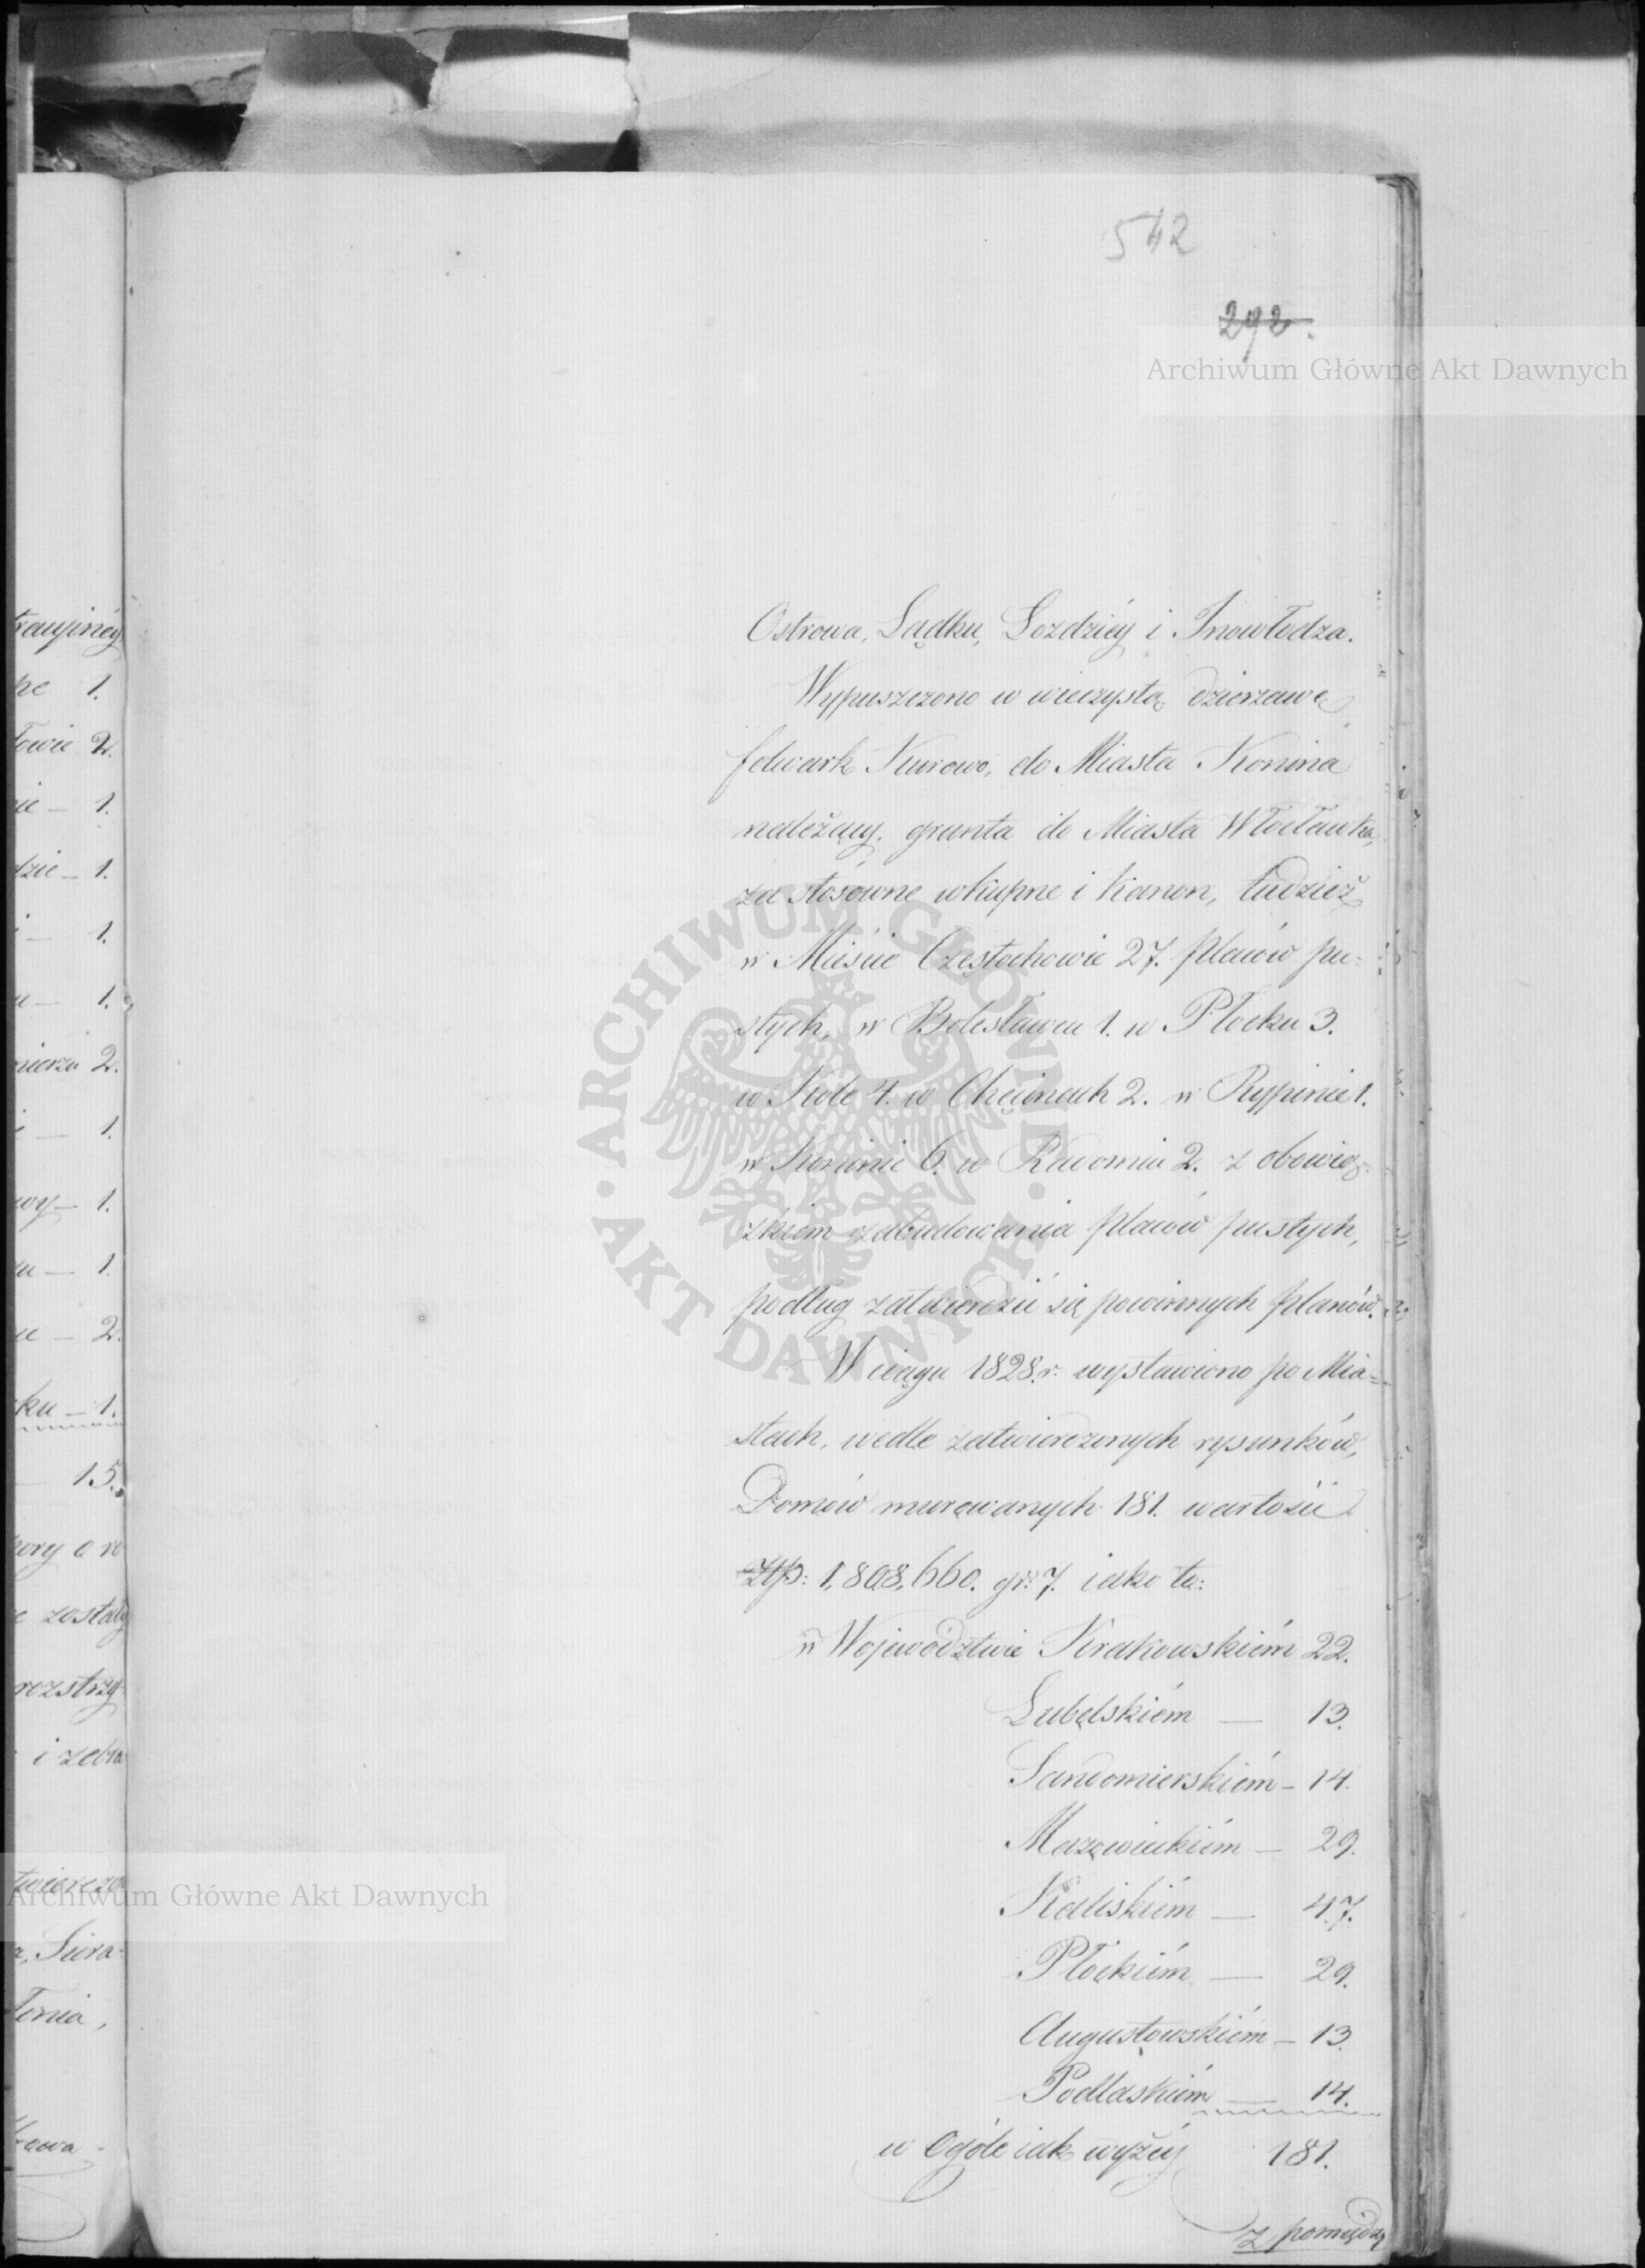 542
292.
Archiwum Główne Akt Dawnych
Ostrowa, Lądku, Łozdziéy i Inowłodza.
Wypuszczono w wieczystą dzierzawę
folwark Kurowo, do Miasta Konina
należący, grunta do Miasta Włocławka,
za stosowne wkupne i kanon, tudzież
w Mieście Częstochowie 27. placów pu=
stych, w Bolesławcu 1. w Płocku 3.
w Kole 4. w Chęcinach 2. w Rypinie 1.
w Koninie 6. w Radomiu 2. z obowią=
zkiem zabudowania placów pustych,
podług zatwierdzić się powinnych planów.
W ciągu 1828. r. wystawiono po Mia=
stach, wedle zatwierdzonych rysunków,
Domów murowanych 181. wartości
Złp: 1,808,660. gr: 7. iako to:
w Województwie Krakowskiém 22.
Lubelskiém — 13.
Sandomierskiém — 14.
Mazowieckiém — 29.
Kaliskiém — 47.
Płockiém — 29.
Augustowskiém — 13.
Podlaskiém — 14.
w Ogóle iak wyżéy 181.
z pomiędzy
ARCHIWUM GŁÓWNE
AKT DAWNYCH
pe 1.
łowie 2.
ie — 1.
dzie — 1.
i — 1.
u — 1.
mierzu 2.
i — 1.
wy — 1.
zu — 1.
u — 2.
ku — 1.
— 15.
zostały
rozstrzy=
i zebra
Archiwum Główne Akt Dawnych
a, Siera=
łonia,